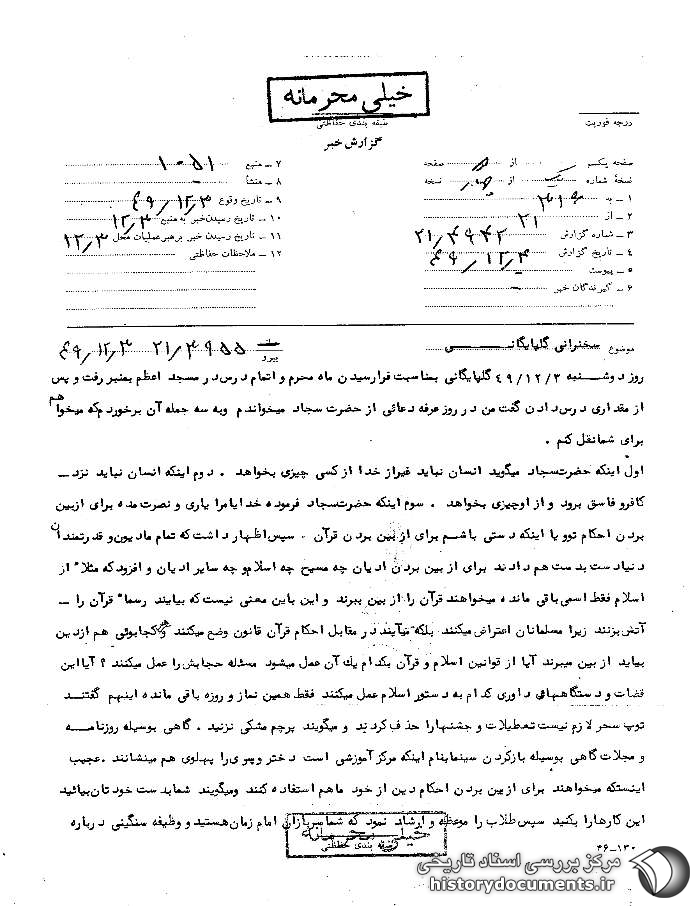 خیلی محرمانه
طبقه بندی حفاظتی
گزارش خبر
درجه فوریت
صفحه یکم از صفحه
نسخهٔ شماره از نسخه
۱ – به ۳۱۶
۲ – از ۲۱
۳ – شماره گزارش ۲۱/۴۹۴۲
۴ – تاریخ گزارش ۴۹/۱۲/۴
۵ – پیوست
۶ – گیرندگان خبر
۷ – منبع ۱۰۵۱
۸ – منشأ
۹ – تاریخ وقوع ۴۹/۱۲/۳
۱۰ – تاریخ رسیدن خبر به منبع ۱۲/۳
۱۱ – تاریخ رسیدن خبر برهبر عملیات محل ۱۲/۳
۱۲ – ملاحظات حفاظتی
موضوع سخنرانی گلپایگانی
پیرو ۲۱/۴۹۵۵ ۴۹/۱۲/۳
روز دوشنبه ۴۹/۱۲/۳ گلپایگانی بمناسبت فرارسیدن ماه محرم و اتمام درس در مسجد اعظم بمنبر رفت و پس
از مقداری درس دادن گفت من در روز عرفه دعائی از حضرت سجاد میخواندم و به سه جمله آن برخوردم که میخواهم
برای شما نقل کنم .
اول اینکه حضرت سجاد میگوید انسان نباید غیر از خدا از کسی چیزی بخواهد . دوم اینکه انسان نباید نزد –
کافرو فاسق برود و از اوچیزی بخواهد . سوم اینکه حضرت سجاد فرموده خدایا مرا یاری و نصرت مده برای ازبین
بردن احکام توو یا اینکه دستی باشم برای از بین بردن قرآن . سپس اظهار داشت که تمام مادیون و قدرتمندان
دنیا دست بدست هم دادند برای از بین بردن ادیان چه مسیح چه اسلام و چه سایر ادیان و افزود که مثلاً از
اسلام فقط اسمی باقی مانده میخواهند قرآن را از بین ببرند و این باین معنی نیست که بیایند رسماً قرآن را –
آتش بزنند زیرا مسلمانان اعتراض میکنند بلکه میآیند در مقابل احکام قرآن قانون وضع میکنند هم ازدین
بیاید از بین میبرند آیا از قوانین اسلام و قرآن بکدام یک آن عمل میشود مسئله حجابش را عمل میکنند ؟ آیا این
قضات و دستگاههای داوری کدام به دستور اسلام عمل میکنند فقط همین نماز و روزه باقی مانده اینهم گفتند
توپ سحر لازم نیست تعطیلات و جشنها را حذف کردند و میگویند پرچم مشکی نزنید . گاهی بوسیله روزنامه
و مجلات گاهی بوسیله باز کردن سینما بنام اینکه مرکز آموزشی است دختر و پسری را پهلوی هم مینشانند . عجیب
اینستکه میخواهند برای از بین بردن احکام دین از خود ماهم استفاده کنند ومیگویند شما بدست خودتان بیائید
این کارها را بکنید سپس طلاب را موعظه و ارشاد نمود که شما سربازان امام زمان هستید و وظیفه سنگینی درباره
خیلی محرمانه
طبقه بندی حفاظتی
۳۶–۱۳۰
مرکز بررسی اسناد تاریخی
historydocuments.ir